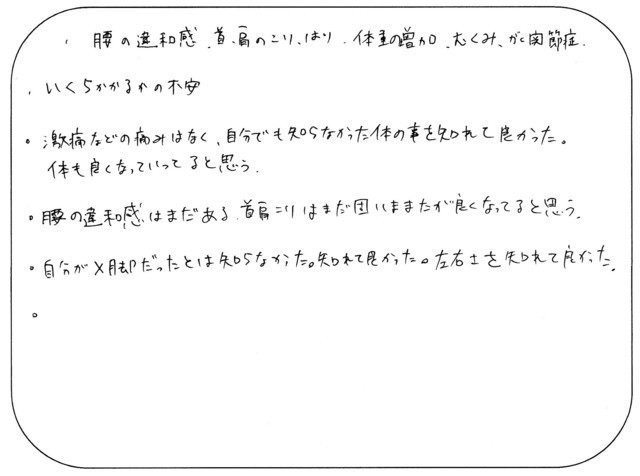 ・腰の違和感、首肩のこり、はり、体重の増加、むくみ、がく関節症.
・いくらかかるかの不安
・激痛などの痛みはなく、自分でも知らなかった体の事を知れて良かった。
体も良くなっていってると思う.
・腰の違和感はまだある.首肩こりはまだ固いままだが良くなってると思う.
・自分がX脚だったとは知らなかった。知れて良かった。左右士を知れて良かった.
。